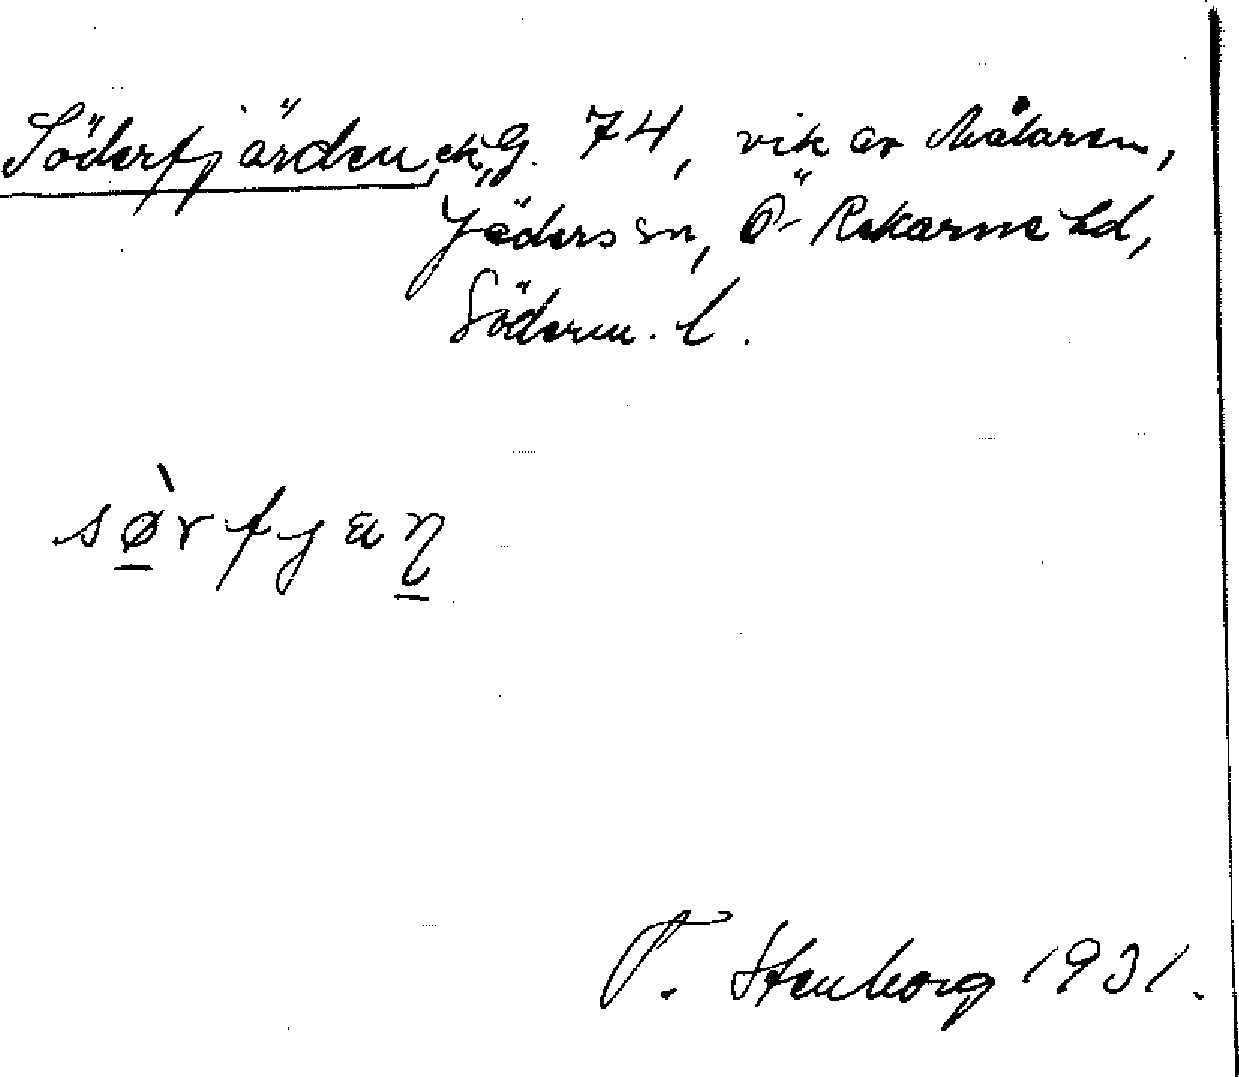 Söderfjärden, ek. G. 74, vik av Mälaren,
Jäders sn, Ö- Rekarne hd,
Söderm. l.
sø̠̀rfjæɳ̠
T. Stenborg 1931.